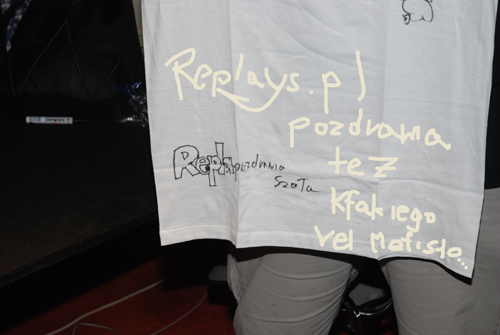 Replays.pl
pozdrawia
też
Kfakiego
vel Matisło...
Replay pozdrawia
Szoła